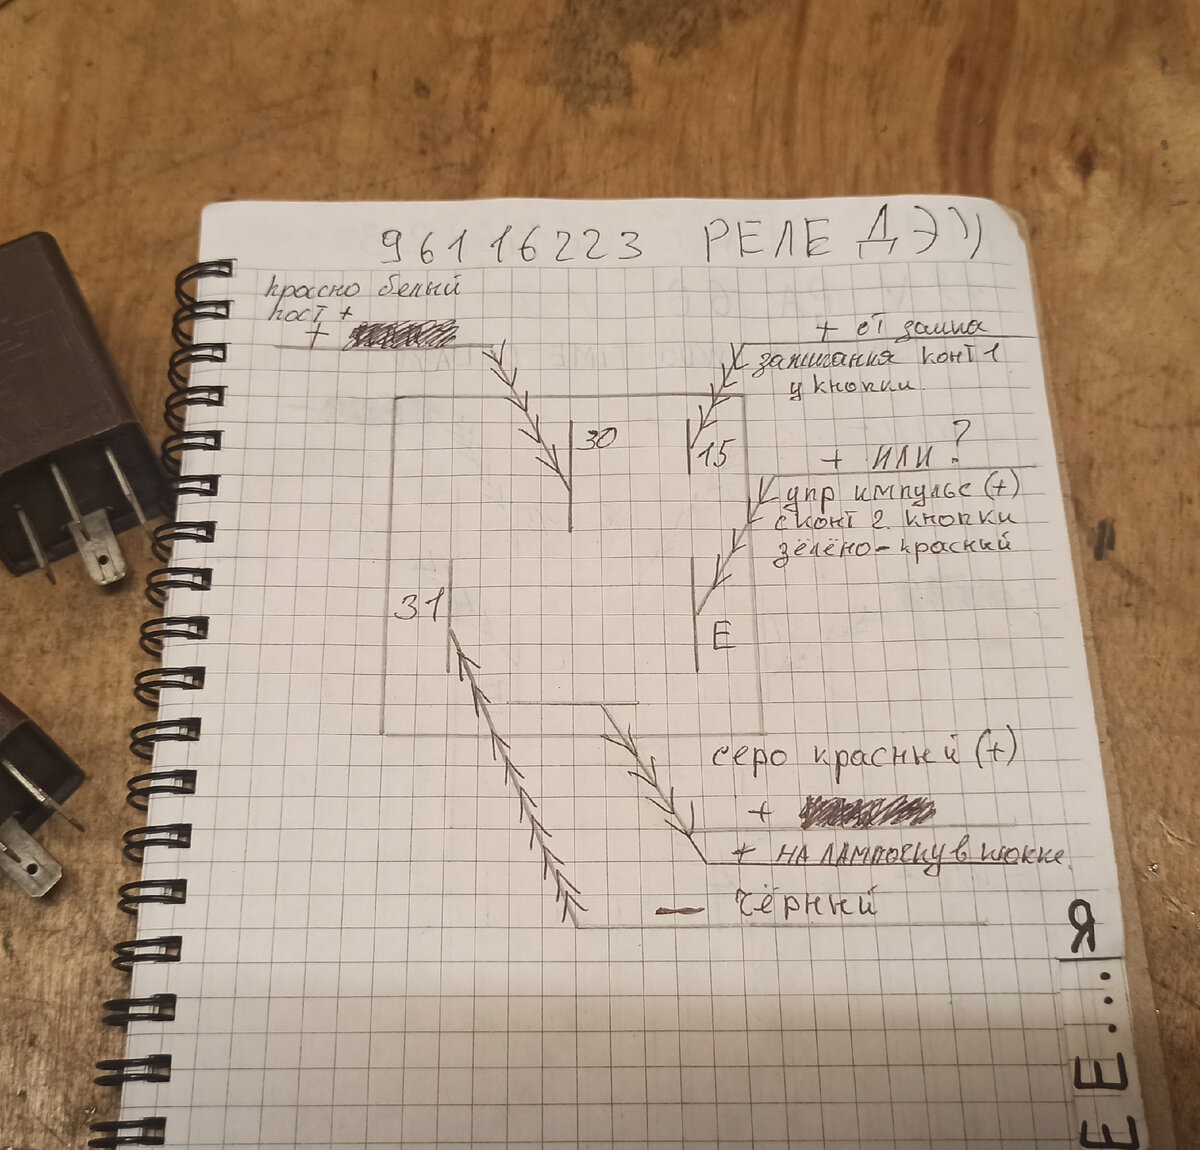 96116223 РЕЛЕ ДЭ)))
красно белый
пост +
+
+ от замка
зажигания конт 1
у кнопки
30
15
+ ИЛИ ?
упр импульс (+)
с конт 2 кнопки
зелёно-красный
31
E
серо красный (+)
+
+ на лампочку в кнопке
— чёрный
Я
ЕЕ...